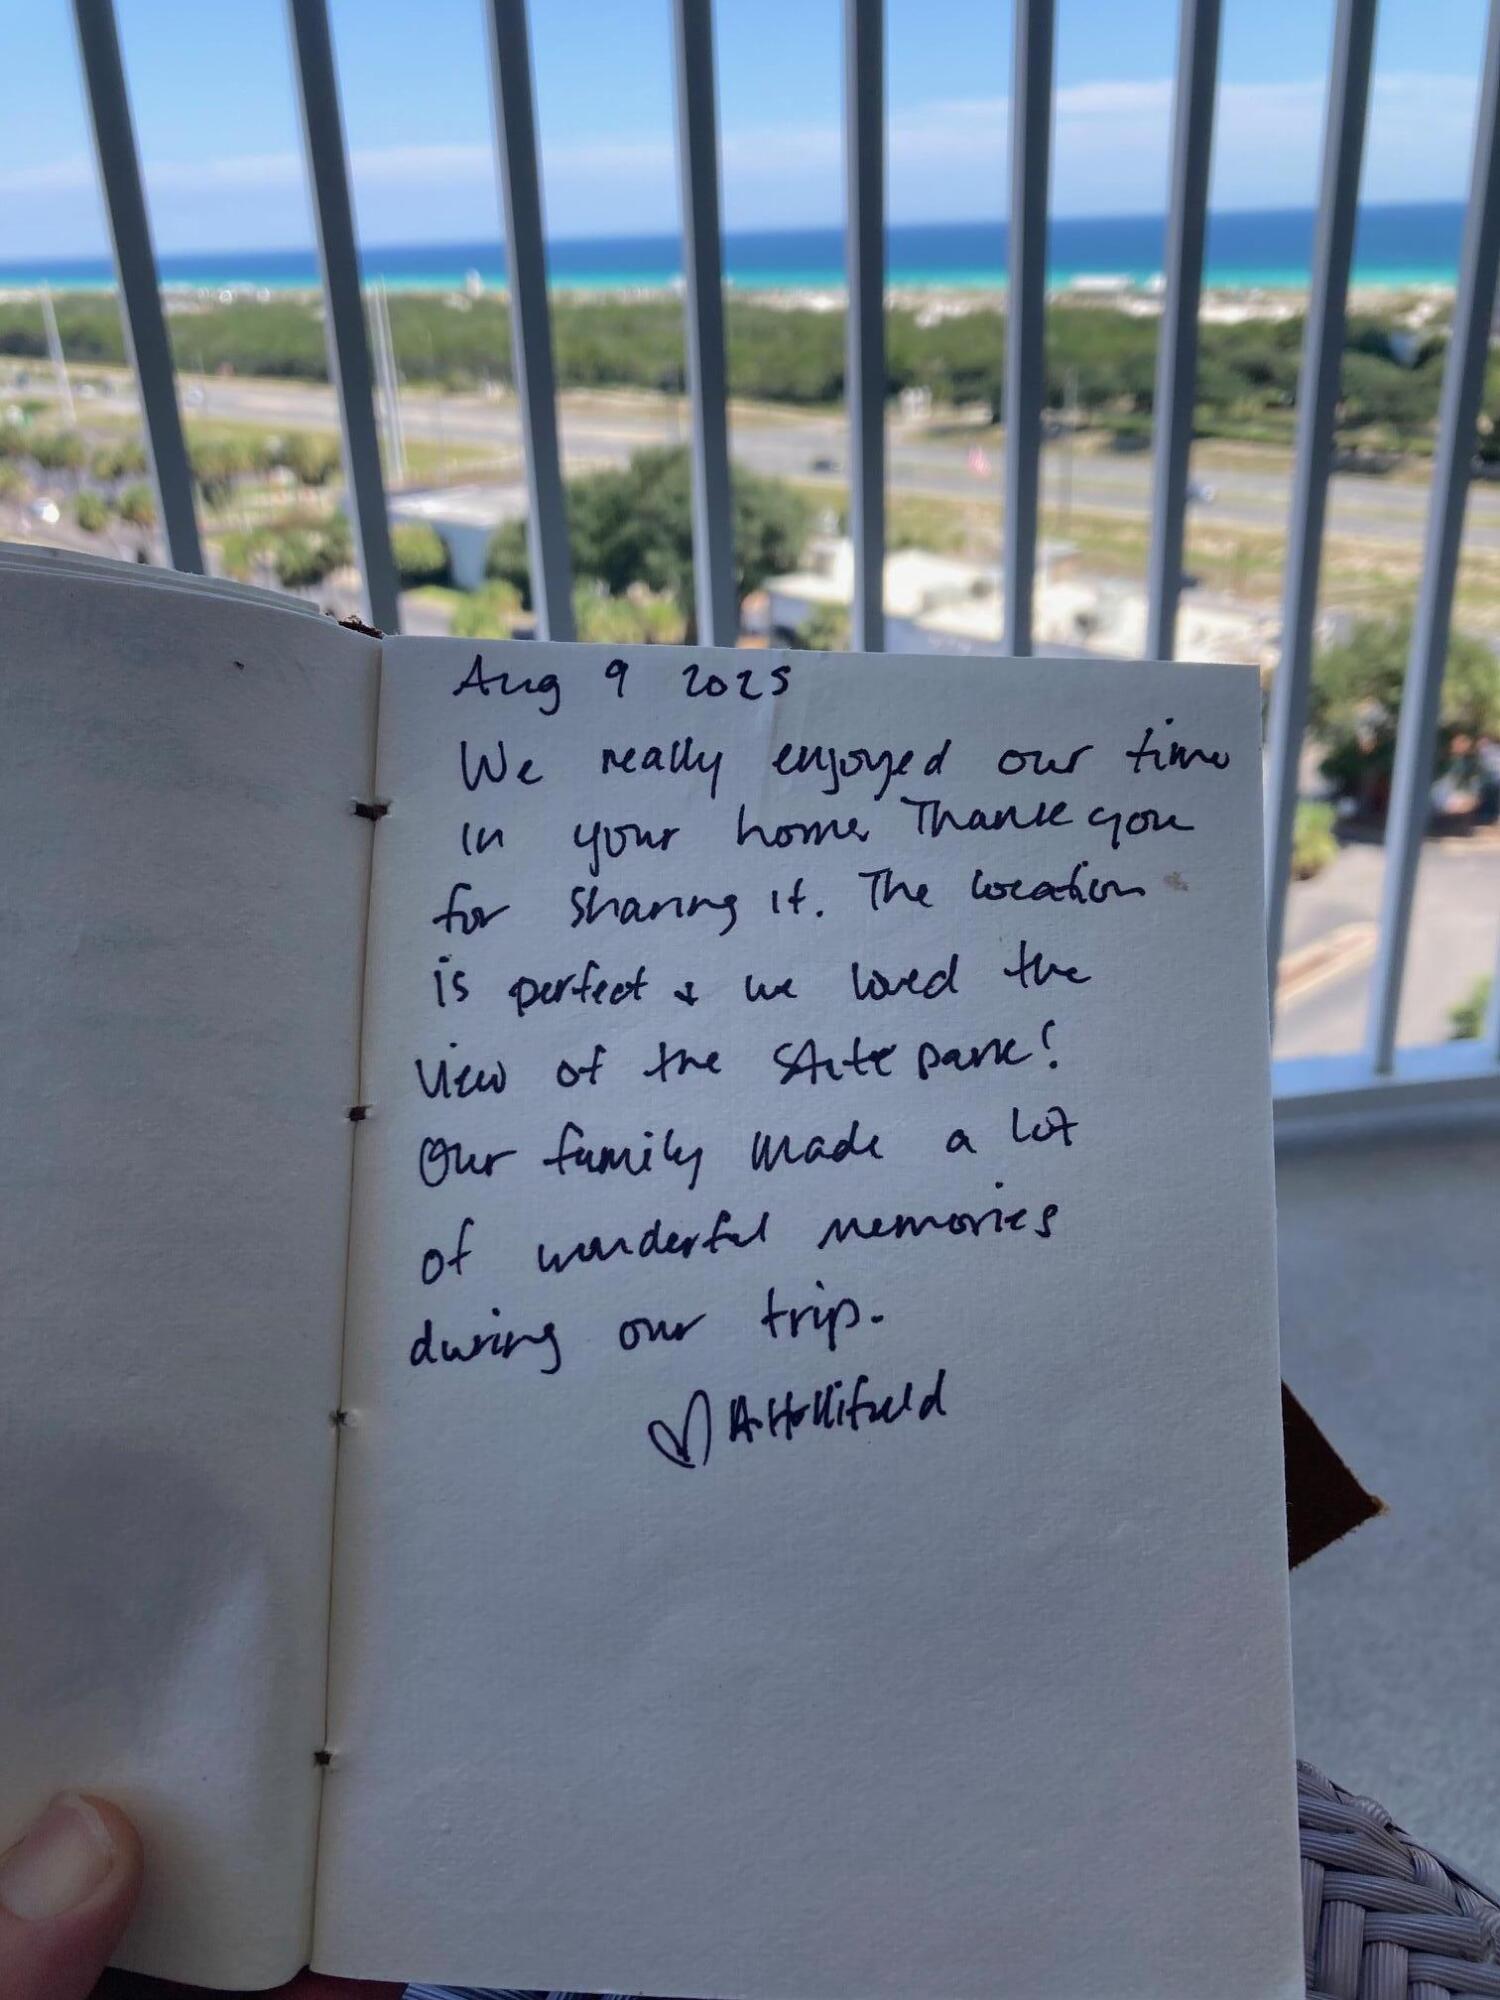 Aug 9 2025
We really enjoyed our time
in your home. Thank you
for sharing it. The location
is perfect & we loved the
view of the state park!
Our family made a lot
of wonderful memories
during our trip.
♡ A. Hollifield